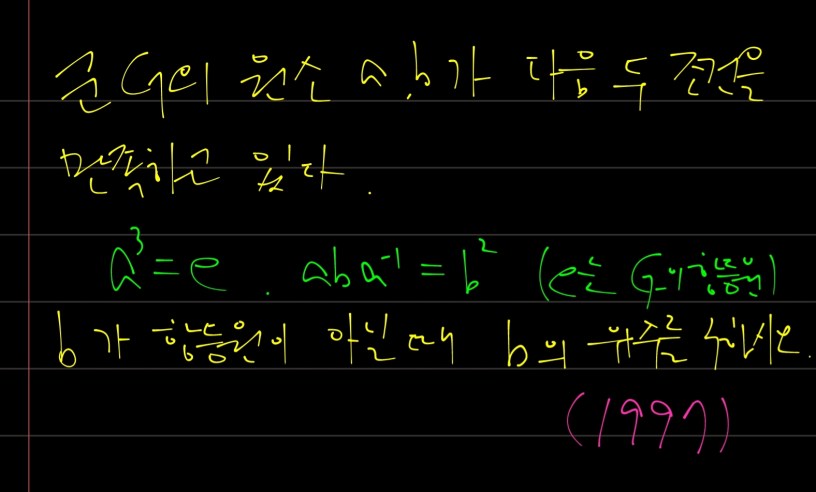 군 G의 원소 a, b가 다음 두 조건을
만족하고 있다.
a³ = e . aba⁻¹ = b² (e는 G의 항등원)
b가 항등원이 아닐 때 b의 위수를 구하시오.
(1997)